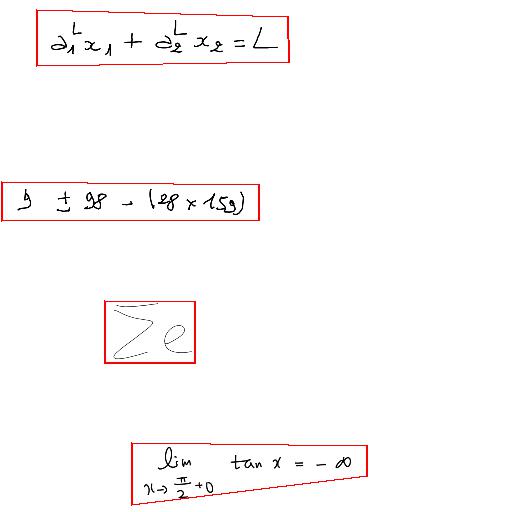 a_1^L x_1 + a_2^L x_2 = L
9 ± 98 - (28 × 159)
\overline{Σ} e
lim_{x→\frac{π}{2}+0} tan x = -∞